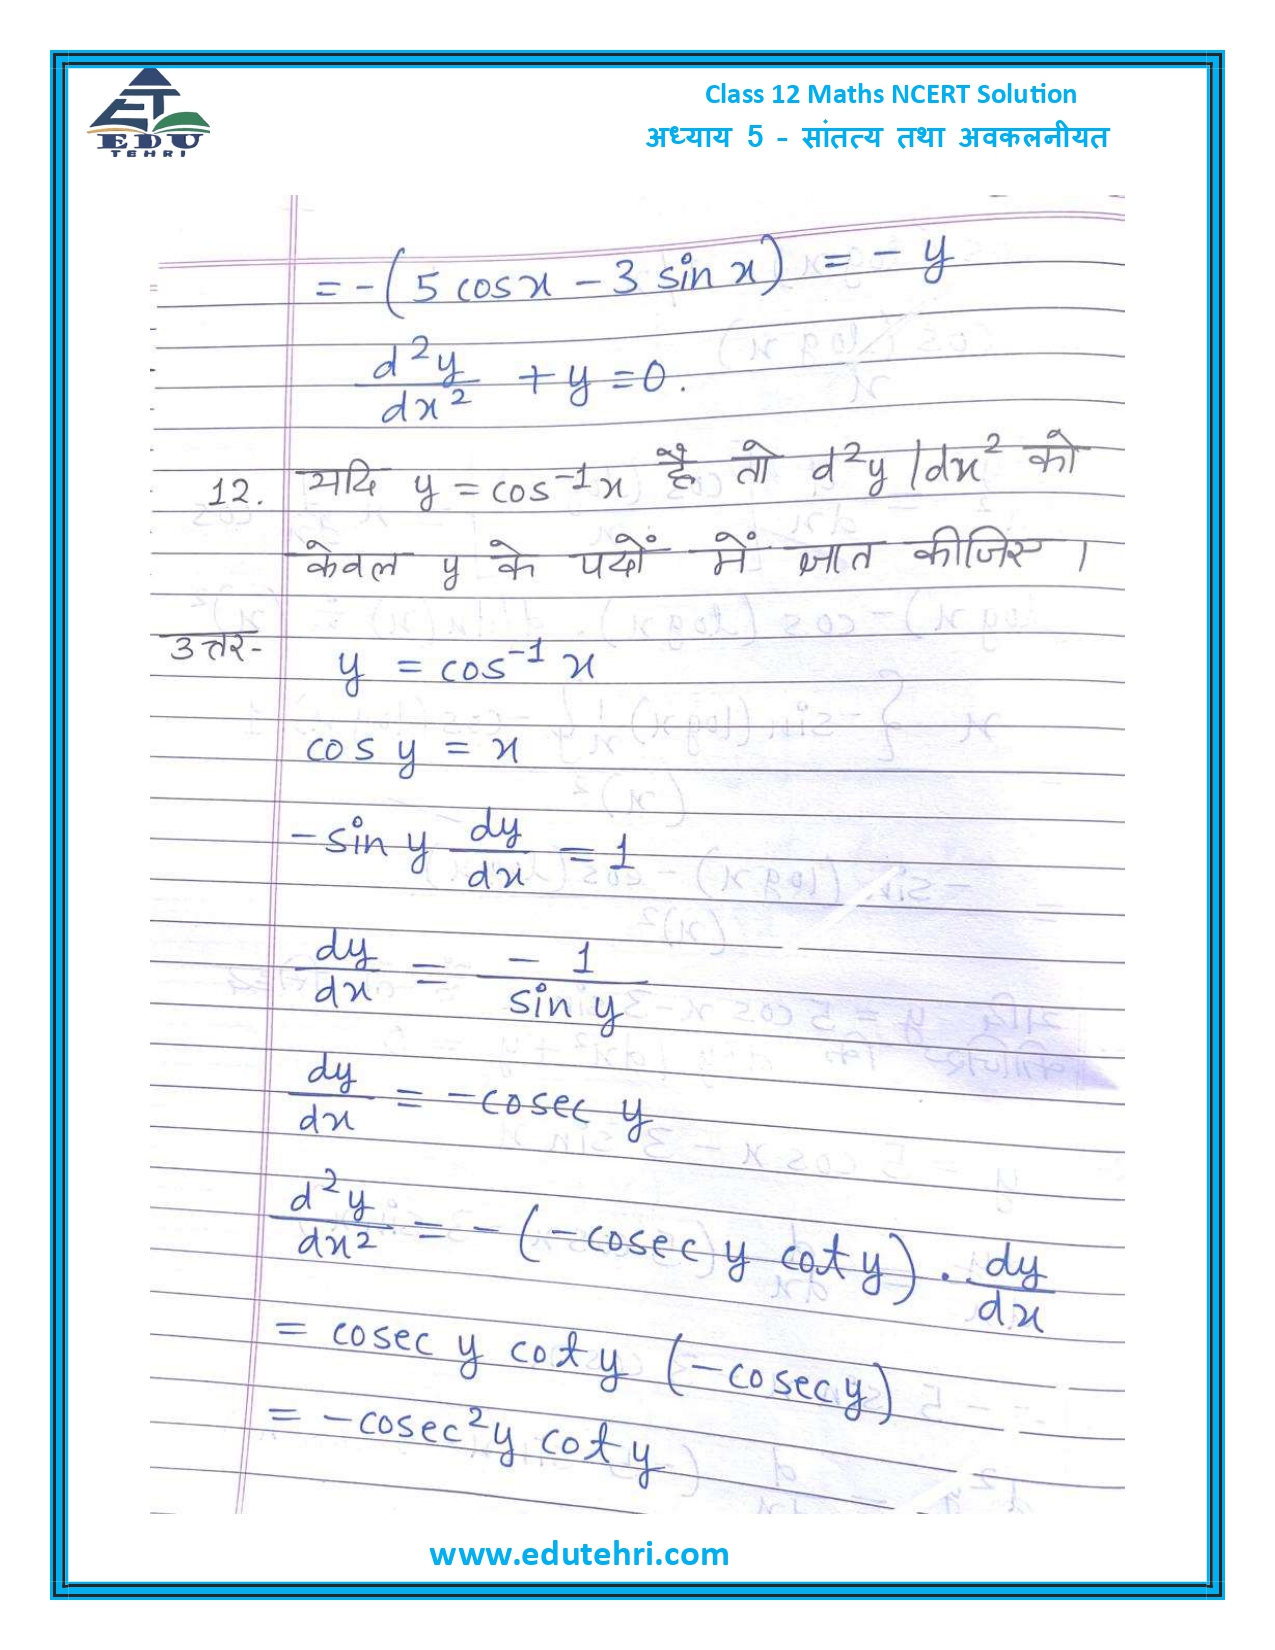 EDU
TEHRI
Class 12 Maths NCERT Solution
अध्याय 5 - सांतत्य तथा अवकलनीयत
= -(5 cosx - 3 sin x) = - y
d²y/dx² + y = 0.
12. यदि y = cos⁻¹x है तो d²y/dx² को
केवल y के पदों में ज्ञात कीजिए।
उत्तर- y = cos⁻¹ x
cos y = x
-sin y dy/dx = 1
dy/dx = -1/sin y
dy/dx = -cosec y
d²y/dx² = -(-cosec y cot y) . dy/dx
= cosec y cot y (-cosec y)
= -cosec²y cot y
www.edutehri.com